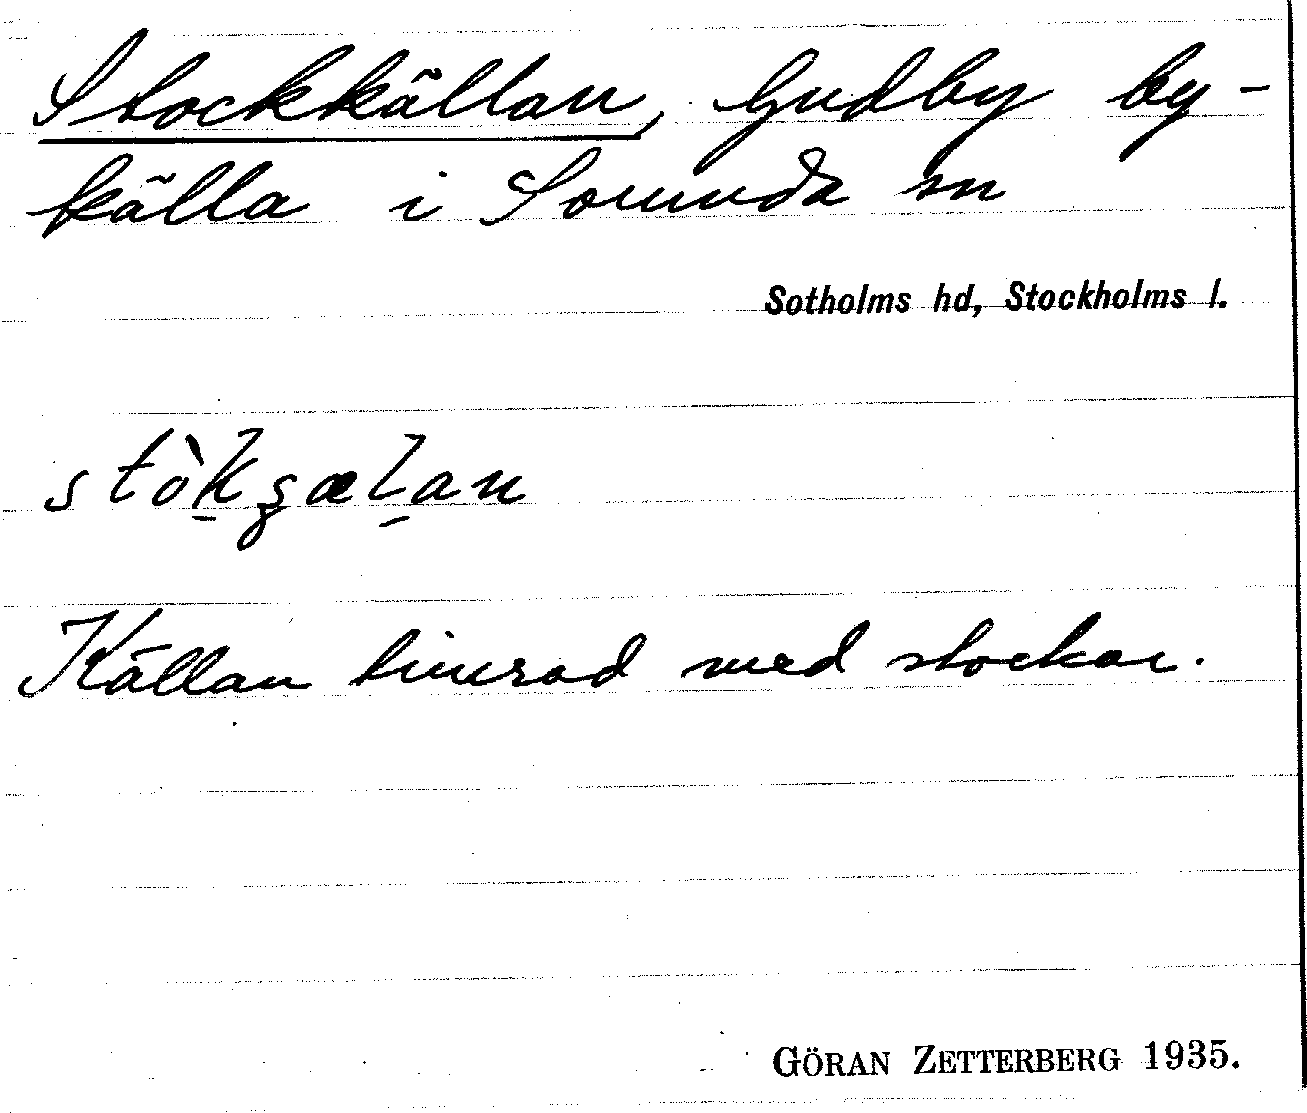 Stockkällan, Gudby by-
källa i Sorunda sn
Sotholms hd, Stockholms l.
stòk̠ʂæl̠an
Källan timrad med stockar.
GÖRAN ZETTERBERG 1935.